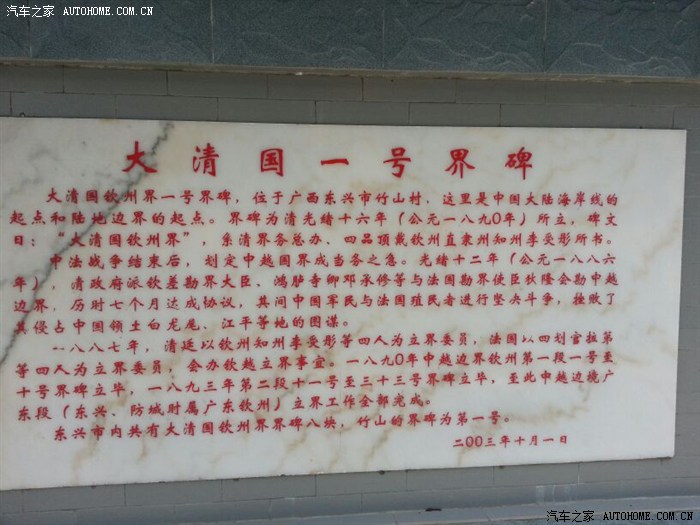 汽车之家 AUTOHOME.COM.CN
大清国一号界碑
大清国钦州界一号界碑，位于广西东兴市竹山村，这里是中国大陆海岸线的
起点和陆地边界的起点。界碑为清光绪十六年（公元一八九0年）所立，碑文
曰：“大清国钦州界”，系清界务总办、四品顶戴钦州直隶州知州李受彤所书。
中法战争结束后，划定中越国界成当务之急。光绪十二年（公元一八八六
年），清政府派钦差勘界大臣、鸿胪寺卿邓承修等与法国勘界使臣狄隆会勘中越
边界，历时七个月达成协议，其间中国军民与法国殖民者进行坚决斗争，挫败了
其侵占中国领土白龙尾、江平等地的图谋。
一八八七年，清廷以钦州知州李受彤等四人为立界委员，法国以四划官拉第
等四人为立界委员，会办钦越立界事宜。一八九0年中越边界钦州第一段一号至
十号界碑立毕，一八九三年第二段十一号至三十三号界碑立毕，至此中越边境广
东段（东兴、防城时属广东钦州）立界工作全部完成。
东兴市内共有大清国钦州界界碑八块，竹山的界碑为第一号。
二00三年十月一日
汽车之家 AUTOHOME.COM.CN